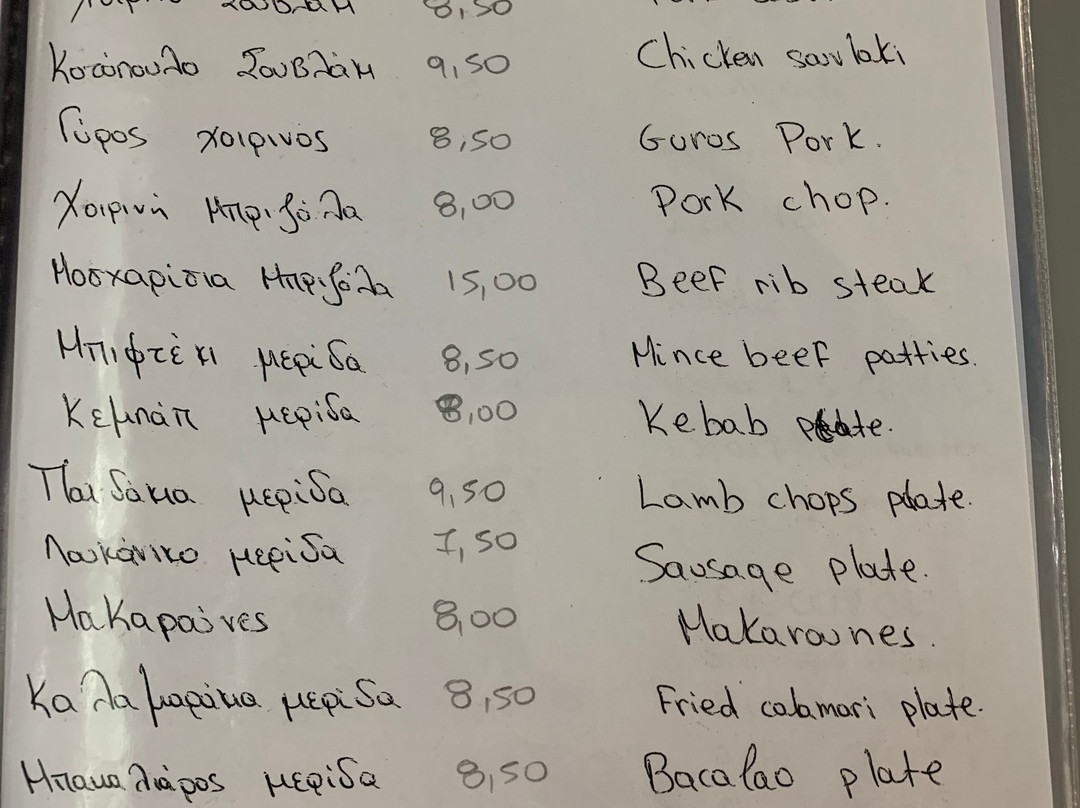 Σουβλάκι 8,50
Κοτόπουλο Σουβλάκι 9,50 Chicken souvlaki
Γύρος χοιρινός 8,50 Guros Pork.
Χοιρινή Μπριζόλα 8,00 Pork chop.
Μοσχαρίσια Μπριζόλα 15,00 Beef rib steak
Μπιφτέκι μερίδα 8,50 Mince beef patties.
Κεμπάπ μερίδα 8,00 Kebab plate.
Παιδάκια μερίδα 9,50 Lamb chops plate.
Λουκάνικο μερίδα 7,50 Sausage plate.
Μακαρούνες 8,00 Makarounes.
Καλαμαράκια μερίδα 8,50 Fried calamari plate.
Μπακαλιάρος μερίδα 8,50 Bacalao plate